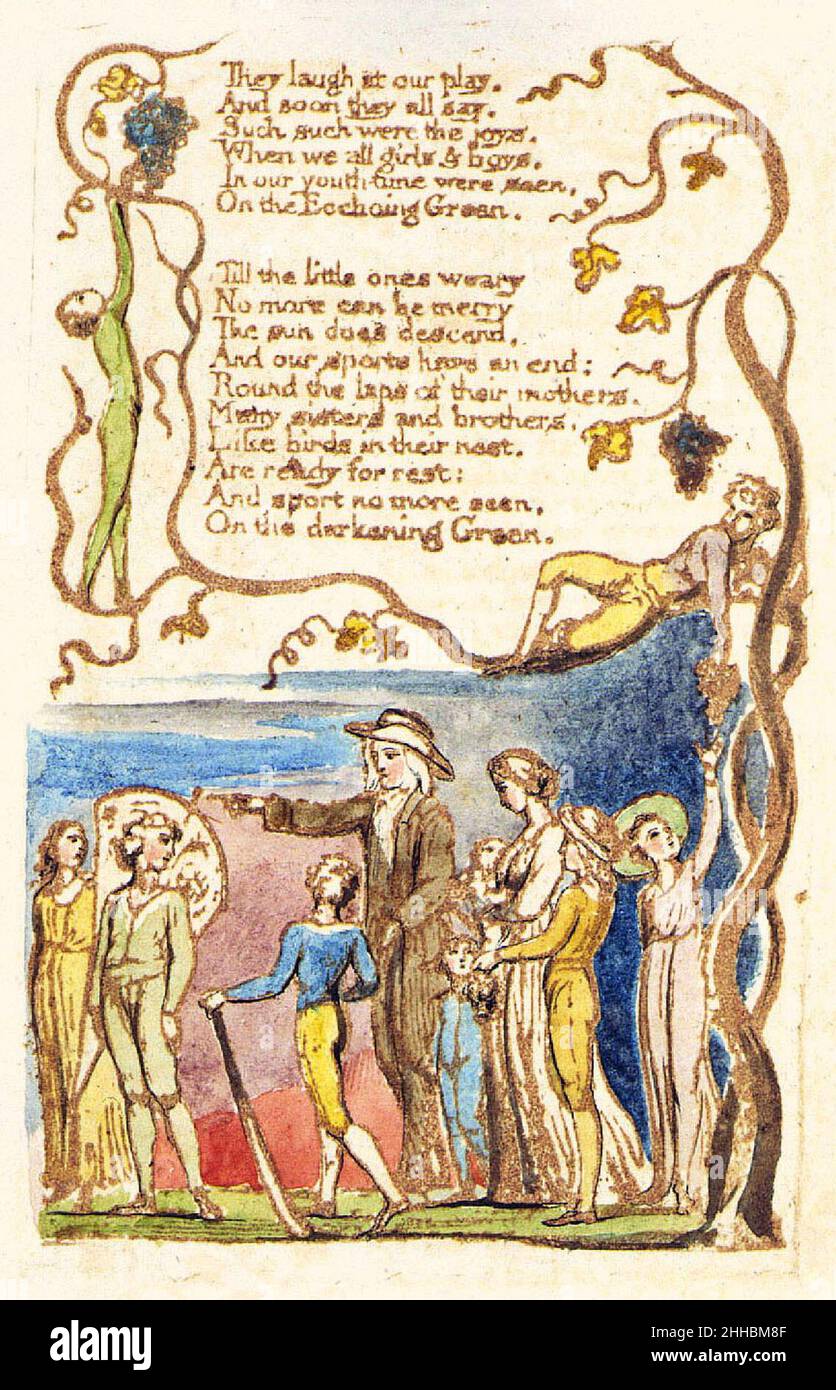 They laugh at our play.
And soon they all say.
Such such were the joys.
When we all girls & boys.
In our youth-time were seen,
On the Ecchoing Green.
Till the little ones weary
No more can be merry
The sun does descend,
And our sports have an end:
Round the laps of their mothers.
Many sisters and brothers,
Like birds in their nest.
Are ready for rest:
And sport no more seen,
On the darkening Green.
alamy
Image ID: 2HHBM8F
www.alamy.com